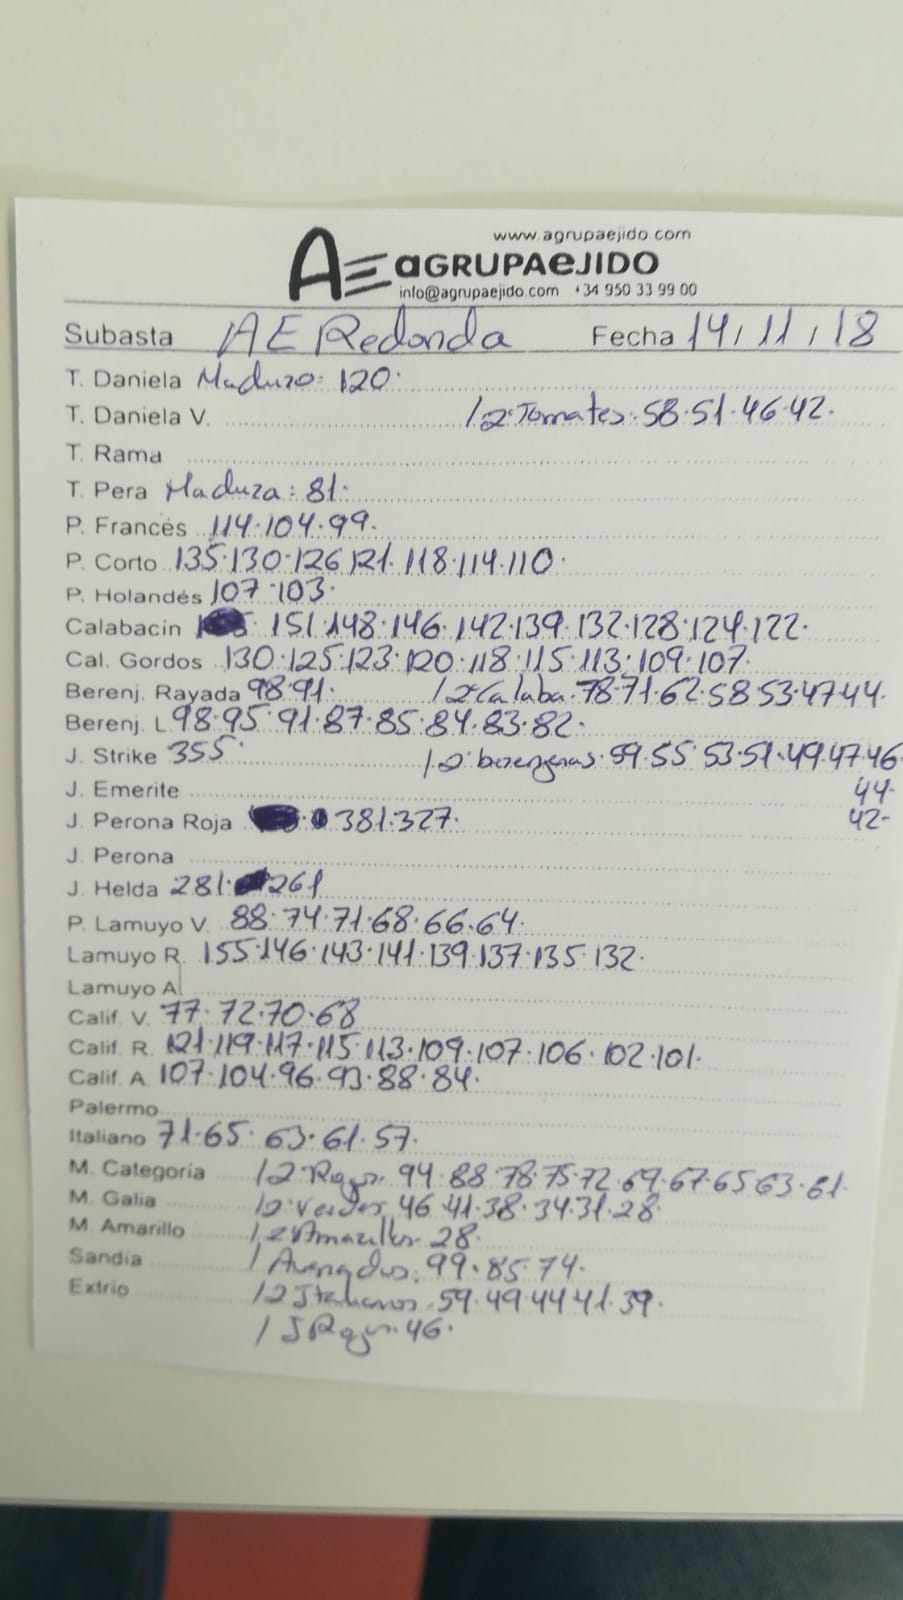 www.agrupaejido.com
AE aGRUPAeJIDO
info@agrupaejido.com +34 950 33 99 00
Subasta AE Redonda Fecha 14/11/18
T. Daniela Maduro: 120.
T. Daniela V. / 2ª Tomates: 58.51.46.42.
T. Rama
T. Pera Maduza: 81.
P. Francés 114.104.99.
P. Corto 135.130.126.121.118.114.110.
P. Holandés 107.103.
Calabacin 151.148.146.142.139.132.128.124.122.
Cal. Gordos 130.125.123.120.118.115.113.109.107.
Berenj. Rayada 98.91. / 2ª Calaba.78.71.62.58.53.47.44.
Berenj. L 98.95.91.87.85.84.83.82.
J. Strike 355. / 2ª berenjenas.59.55.53.51.49.47.46
J. Emerite 44.
J. Perona Roja 381.327. 42-
J. Perona
J. Helda 281.261
P. Lamuyo V. 88.74.71.68.66.64.
Lamuyo R. 155.146.143.141.139.137.135.132.
Lamuyo A.
Calif. V. 77.72.70.68
Calif. R. 121.119.117.115.113.109.107.106.102.101.
Calif. A. 107.104.96.93.88.84.
Palermo
Italiano 71.65.63.61.57.
M. Categoria / 2 94.88.78.75.72.69.67.65.63.61.
M. Galia / 2ª Verdes. 46.41.38.34.31.28.
M. Amarillo / 2 Amarillos. 28.
Sandia / 99.85.74.
Extrio / 2 Italianos.59.49.44.41.39.
/ 46.